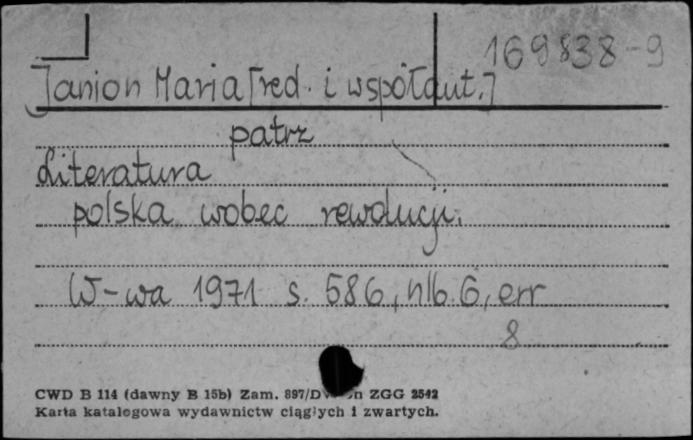 169838-9
Janion Maria [red. i współaut.]
patrz
Literatura
polska wobec rewolucji.
W-wa 1971 s. 586, nlb. 6, err
8
CWD B 114 (dawny B 15b) Zam. 897/D ZGG 2542
Karta katalogowa wydawnictw ciągłych i zwartych.